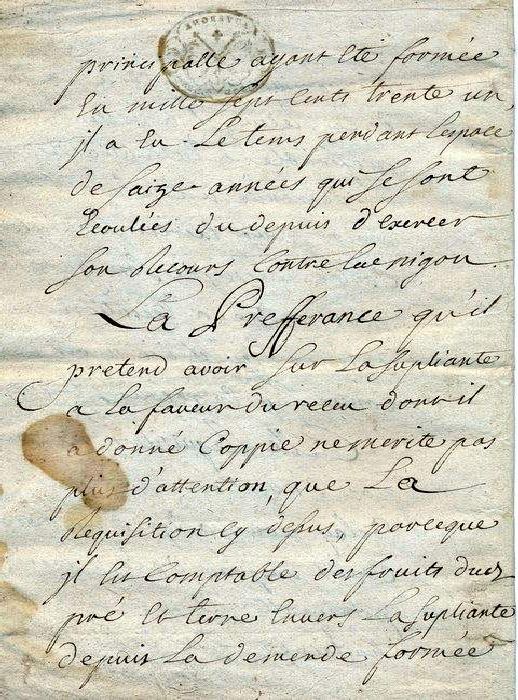 principalle ayant été formée
En mille sept cents trente un,
jl a Eu Le tems pendant l'espace
de Saize années qui se sont
Ecoulées du depuis d'exercer
son Recours Contre
La Prefferance qu'il
pretend avoir sur La supliante
a La faveur du receu dont il
a donné Coppie ne merite pas
plus d'attention, que La
Requisition cy desus, parceque
jl Est Comptable des fruits dud
pré Et terre Envers La supliante
depuis La demende formée